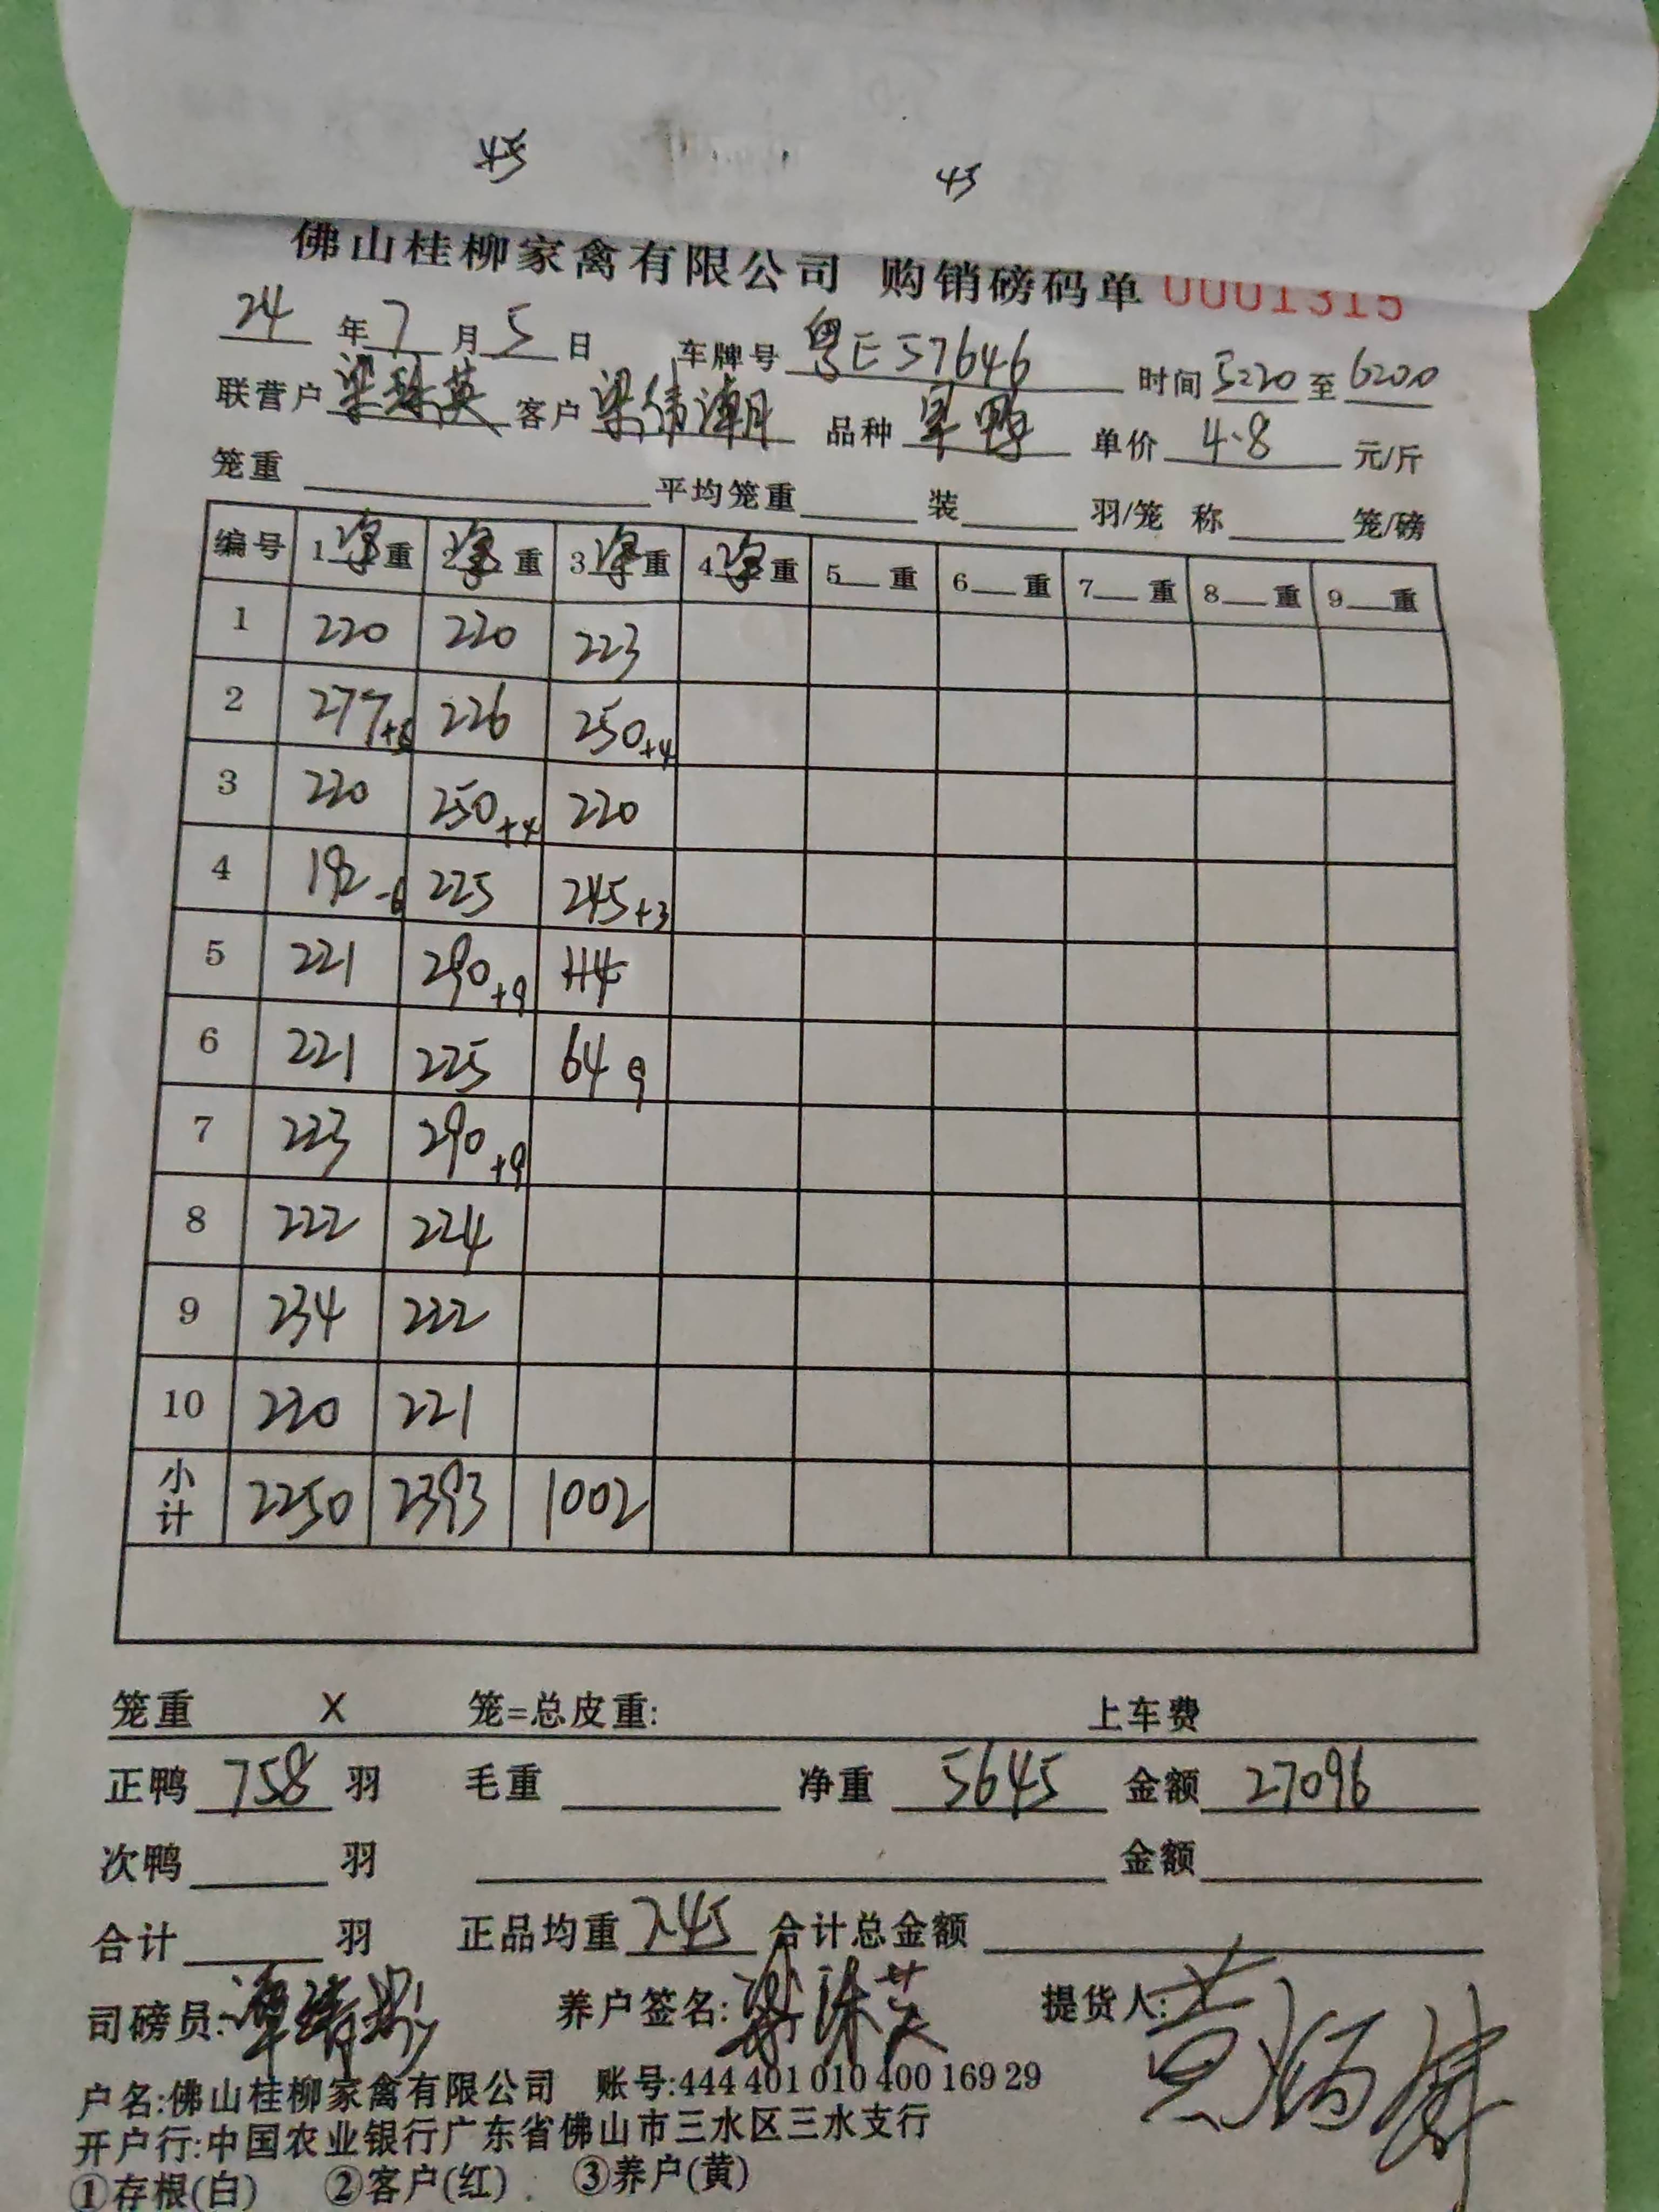 45 45
佛山桂柳家禽有限公司 购销磅码单 0001315
24 年 7 月 5 日 车牌号 粤E57646 时间 5220 至 6200
联营户 梁珠英 客户 梁伟潮 品种 单价 4.8 元/斤
笼重 平均笼重 装 羽/笼 称 笼/磅
编号 1净重 2净重 3净重 4净重 5 重 6 重 7 重 8 重 9 重
1 220 220 223
2 277+8 226 250+4
3 220 250+4 220
4 192-6 225 245+3
5 221 290+9
6 221 225 64 9
7 223 290+9
8 222 224
9 234 222
10 220 221
小计 2250 2393 1002
笼重 X 笼=总皮重: 上车费
正鸭 758 羽 毛重 净重 5645 金额 27096
次鸭 羽 金额
合计 羽 正品均重 7.45 合计总金额
司磅员: 养户签名: 梁珠英 提货人:
户名:佛山桂柳家禽有限公司 账号:444 401 010 400 169 29
开户行:中国农业银行广东省佛山市三水区三水支行
①存根(白) ②客户(红) ③养户(黄)